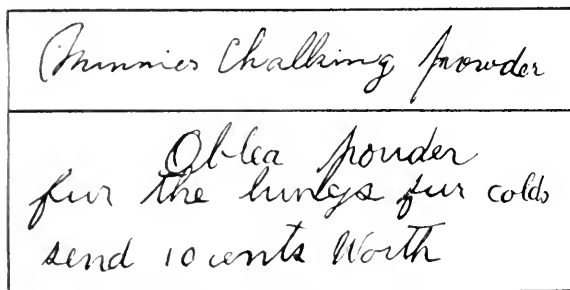 Minnies Chalking powder
Oblea pouder
fur the lungs fur colds
send 10 cents Worth